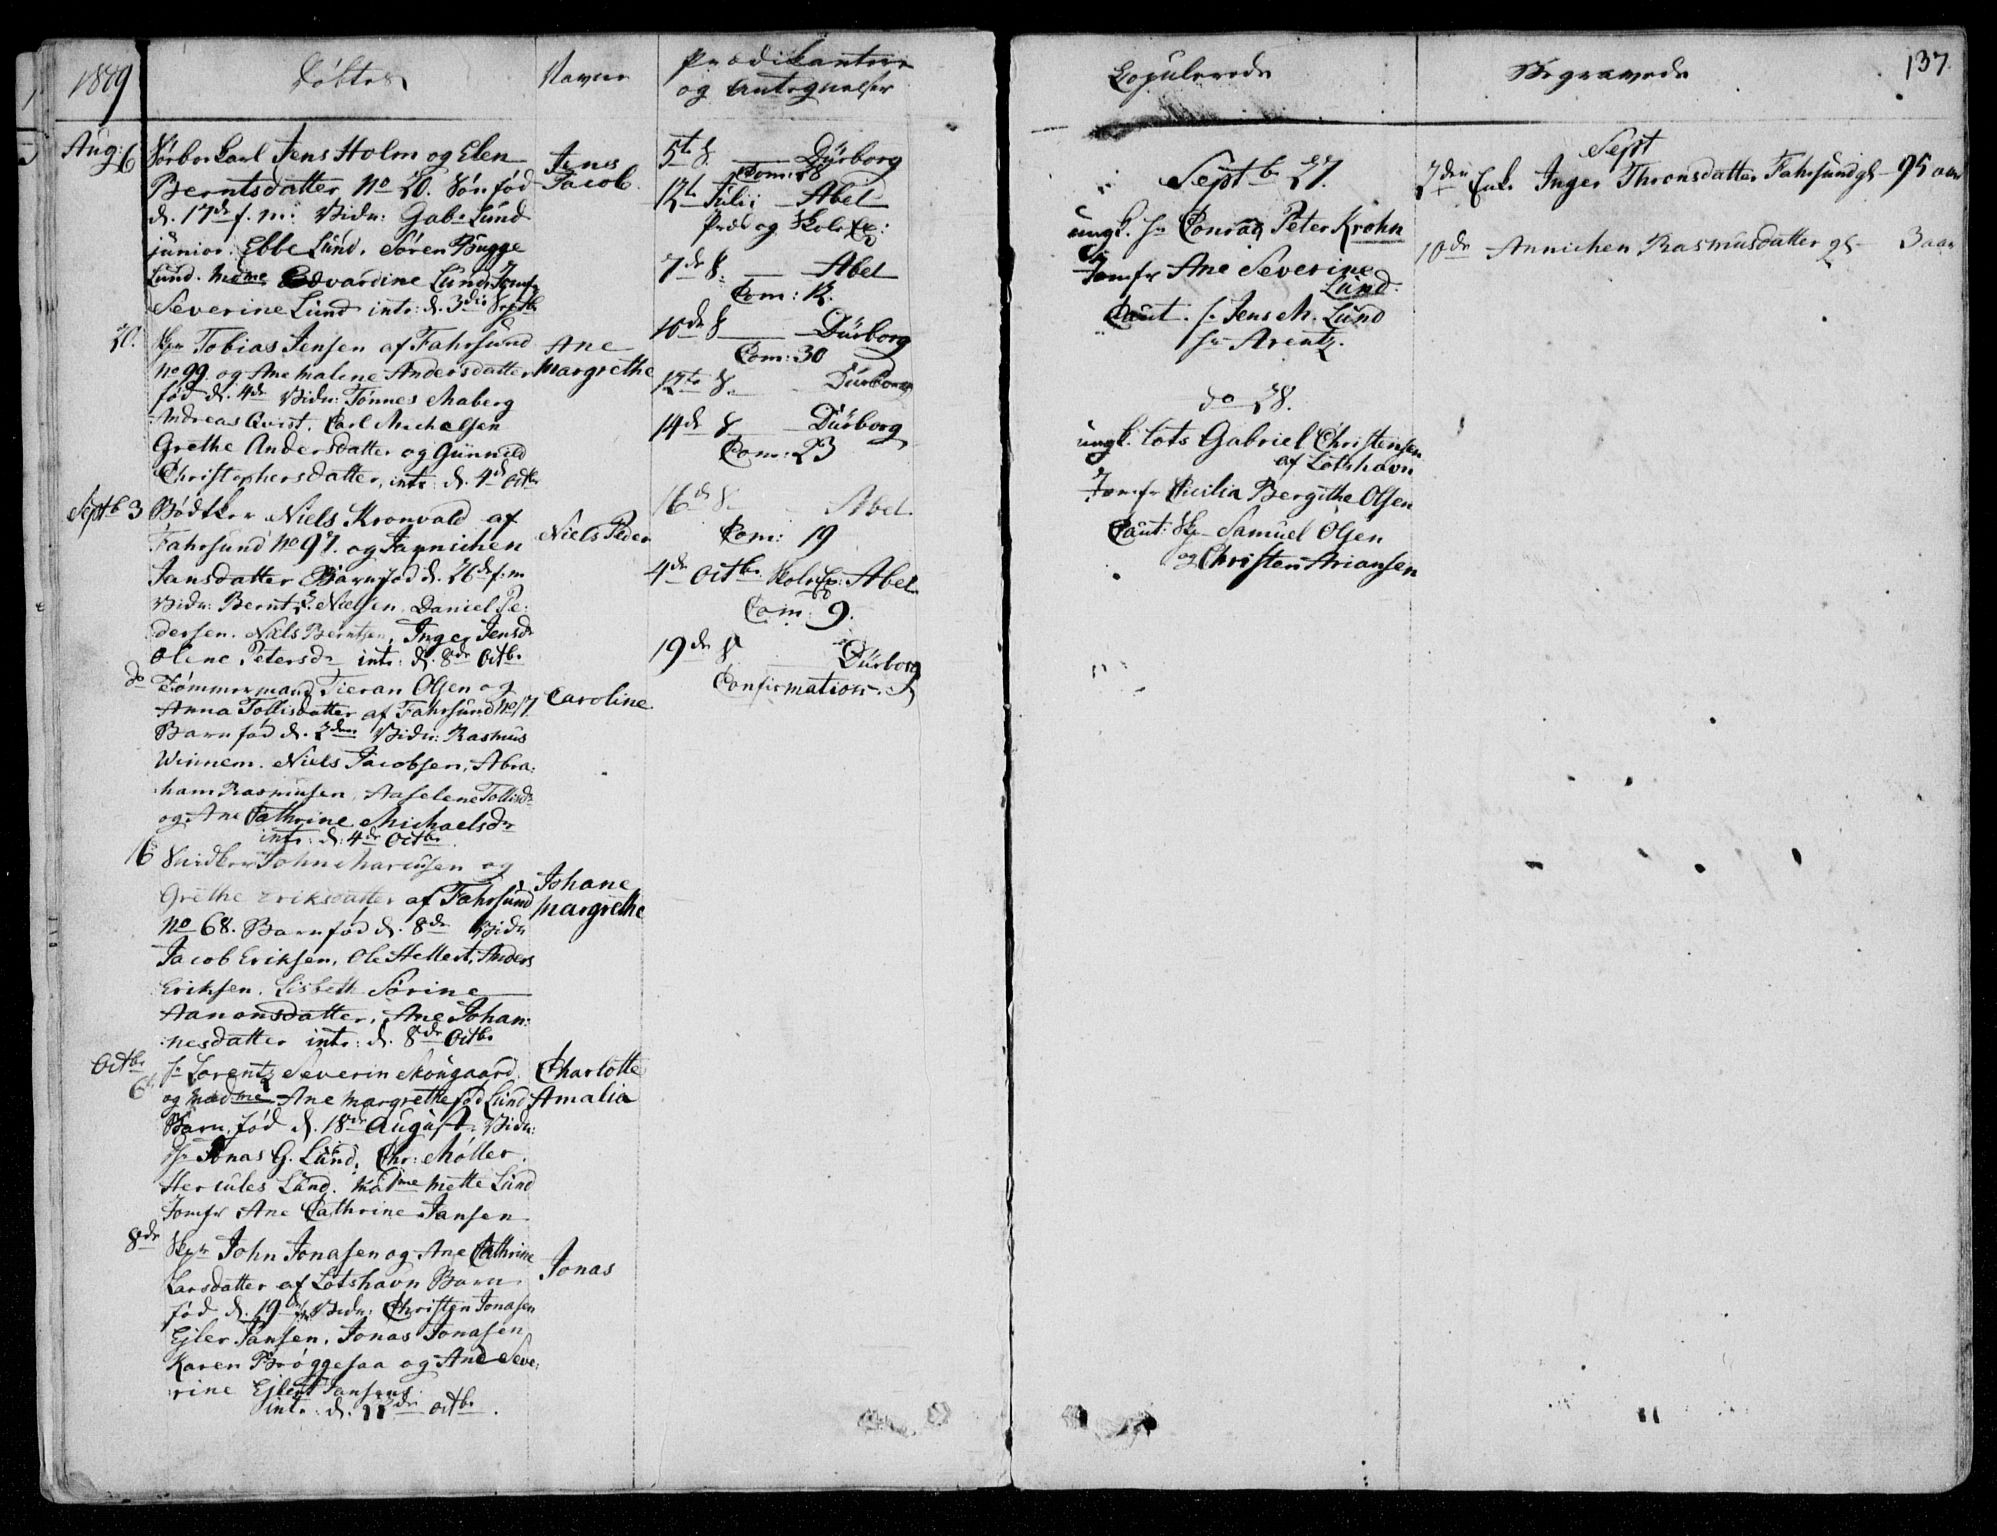 1809
Døbte
Navne
Prædikantere
og Antegnelser
Aug: 6
Jens Holm og Elen
Berntsdatter No 20. Søn fød
d. 17de f. m: Vidn: Gab: Lund
junior. Ebbe Lund. Søren Bugge
Lund. Madme Edvardine Lund. Jomfr
Severine Lund intr: d. 3die Septbr
Jens
Jacob
20. Skpr Tobias Jensen af Fahrsund
No 99. og Ane Malene Andersdatter
fød d. 4de Vidn: Tønnes Maberg
Andreas Qvist. Carl Michelsen
Grethe Andersdatter og Gunnild
Christophersdatter, intr: d. 4de Octbr
Ane
Margrethe
Septb 3 Bødker Niels Kronvald af
Fahrsund No 97. og Jannichen
Jansdatter Barn fød d. 26de f. m
Vidn: Bernt Nielsen. Daniel Pe:
dersen. Niels Berntsen, Inger Jensdr
Olene Petersdr intr: d. 8de Octbr
Niels Peder
do Tømmermand Tieran Olsen og
Anna Tollisdatter af Fahrsund No 17
Barn fød d. 2den Vidn: Rasmus
Winnem. Niels Jacobsen, Abra:
ham Rasmusen, Aaselene Tollisdr
og Ane Cathrine Michaelsdr
intr: d: 4de Octbr.
Caroline
16 Snidker John Marcusen og
Grethe Eriksdatter af Fahrsund
No 68. Barn fød d. 8de Vidn
Jacob Eriksen, Ole Hellert, Anders
Eriksen. Lisbeth Sørine
Aanonsdatter, Ane Johan:
nesdatter intr: d. 8de Octbr
Johane
Margrethe
Octbr
6te Hr Lorentz Severin Skougaard.
og Madme Ane Margrethe fød Lund
Barn, fød d. 18de August. Vidn:
Hr Jonas G. Lund, Chr: Møller.
Hercules Lund. Madme Mette Lund
Jomfr Ane Cathrine Jansen
Charlotte
Amalia
8de Skpr John Jonasen og Ane Cathrine
Larsdatter af Lotshavn Barn
fød d. 19de Vidn: Christen Jonasen
Ejler Jansen, Jonas Jonasen
Karen Brøggesaa og Ane Seve:
rine Ejlert Jansens
intr: d. Octbr.
Jonas
5te S. Durborg
Com: 28
12te Julii Abel
Præd og Skole Ex:
7de S. Abel
Com: 12.
10de S Durborg
Com: 30
12te S. Durborg
14de S Durborg
Com: 23
16de S. Abel
Com: 19
4de Octbr Skole Ex: Abel
Com: 9.
19de S Durborg
Confirmation.
Copulerede
Septbr 27.
ungk. Hr Conrad Peter Krohn
og
Jomfr Ane Severine
Lund.
Caut. Hr Jens M. Lund
Hr Arentz.
do 28.
ungk. Lots Gabriel Christensen
af Lotshavn
Jomfr Cicilia Bergithe Olsen
Caut: Skp Samuel Olsen
og Christen Ariansen
Begravede
137.
Sept
7den Enke Inger Thronsdatter Fahrsund gl 95 aar
10de Annichen Rasmusdatter gl 3 aar